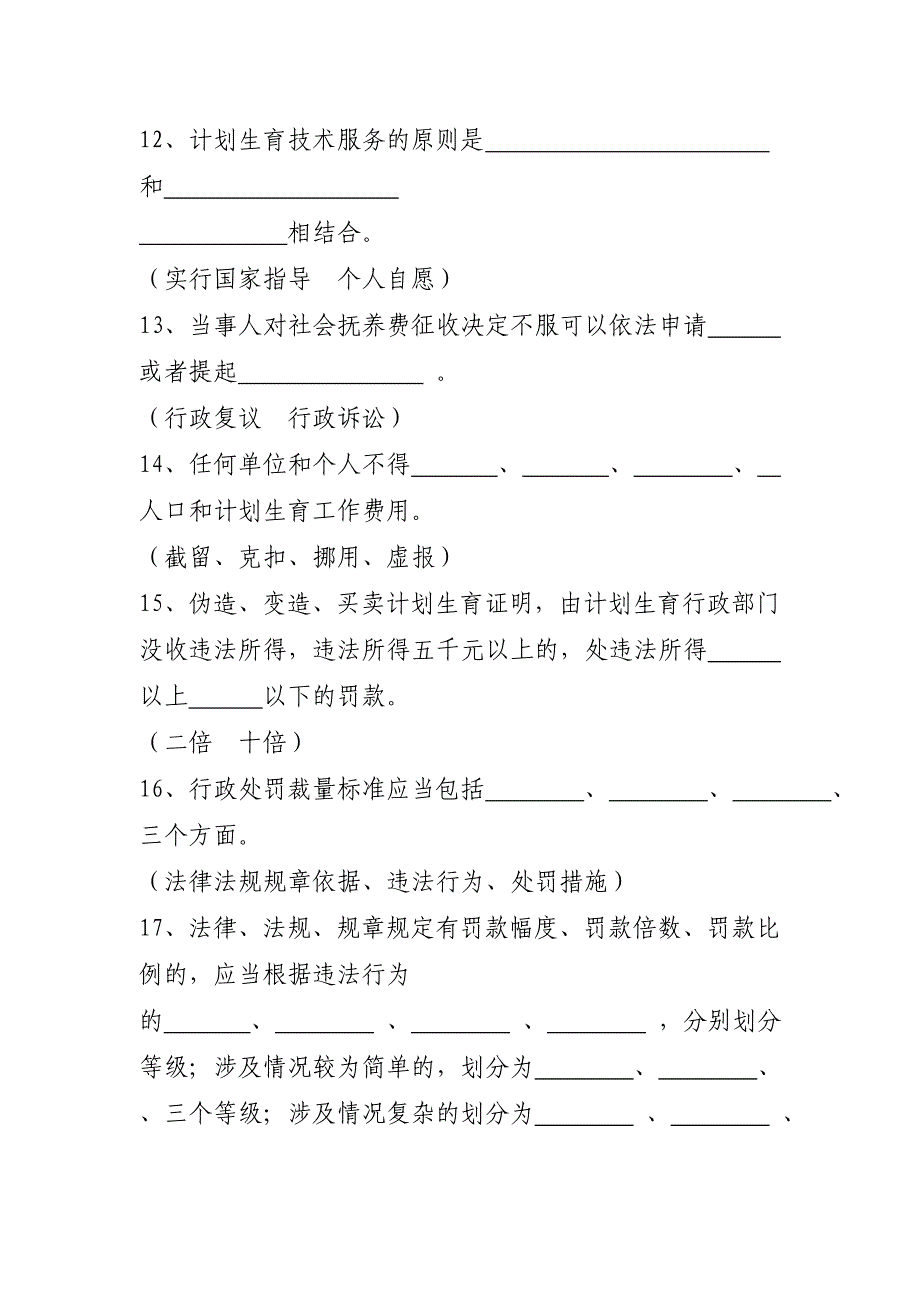 12、计划生育技术服务的原则是_______________________
和___________________
____________相结合。
（实行国家指导　个人自愿）
13、当事人对社会抚养费征收决定不服可以依法申请______
或者提起_______________ 。
（行政复议　行政诉讼）
14、任何单位和个人不得_______、_______、________、__
人口和计划生育工作费用。
（截留、克扣、挪用、虚报）
15、伪造、变造、买卖计划生育证明，由计划生育行政部门
没收违法所得，违法所得五千元以上的，处违法所得______
以上______以下的罚款。
（二倍　十倍）
16、行政处罚裁量标准应当包括________、________、________、
三个方面。
（法律法规规章依据、违法行为、处罚措施）
17、法律、法规、规章规定有罚款幅度、罚款倍数、罚款比
例的，应当根据违法行为
的_______、________ 、________ 、________ ，分别划分
等级；涉及情况较为简单的，划分为________、________、
、三个等级；涉及情况复杂的划分为________ 、________ 、